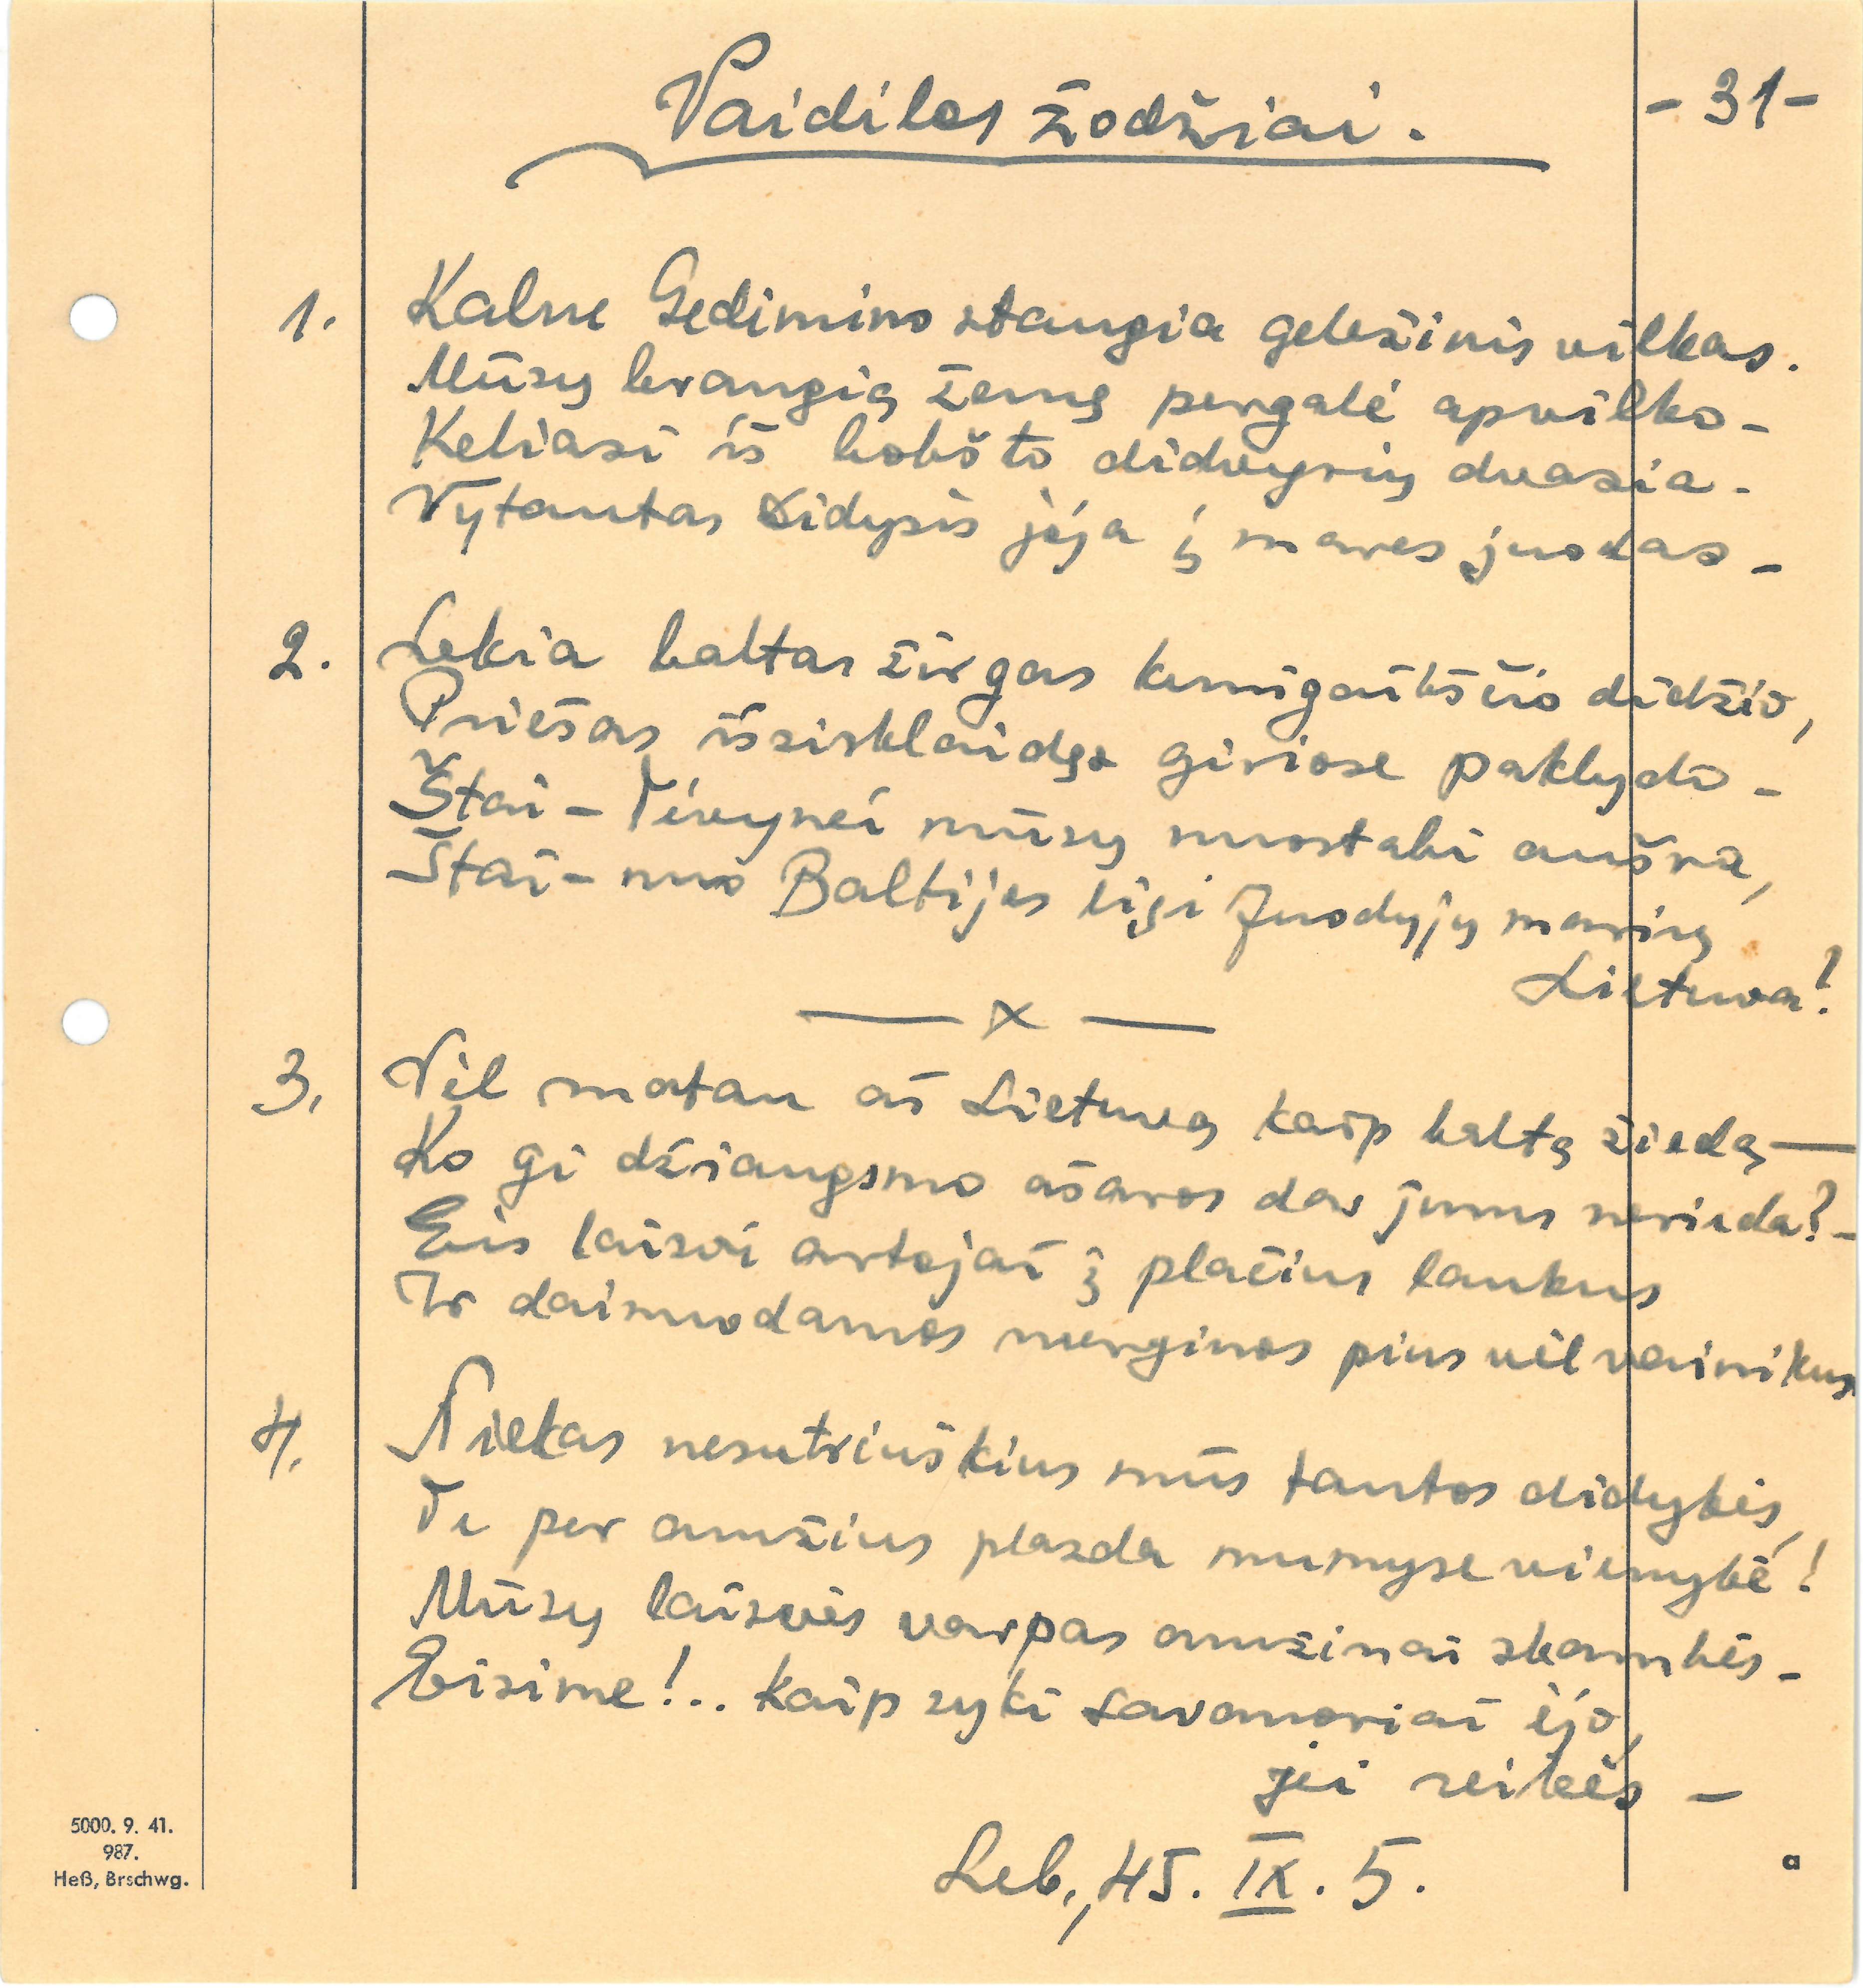 Vaidilos žodžiai.
- 31 -
1. Kalne Gedimino staugia geležinis vilkas.
Mūsų brangią žemę pergalė apvilko -
Keliasi iš bokšto didvyrių dvasia -
Vytautas Didysis jója į mares juodas -
2. Lekia baltas žirgas kunigaikščio didžio,
Priešas išsisklaidęs giriose paklydo -
Štai - Tėvynei mūsų nuostabi aušra,
Štai - nuo Baltijos ligi Juodųjų marių
Lietuva!
— x —
3. Vėl matau aš Lietuvą kaip baltą žiedą —
Ko gi džiaugsmo ašaros dar jums nerieda? -
Eis laisvi artojai į plačius laukus
Ir dainuodamos merginos pins vėl vainikus
4. Niekas nesutriuškins mūs tautos didybės,
Te per amžius plazda mumyse vienybė!
Mūsų laisvės varpas amžinai skambės -
Eisime!.. kaip sykį savanoriai ėjo,
jei reikės —
Leb., 45. IX. 5.
5000. 9. 41.
987.
Heß, Brschwg.
a